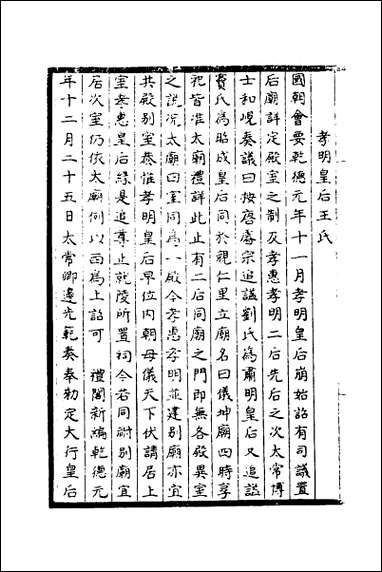 孝明皇后王氏
國朝會要乾德元年十一月孝明皇后崩始詔有司議置
后廟詳定殿室之制及孝惠孝明二后先后之次太常博
士和峴奏議曰按唐睿宗追諡劉氏為肅明皇后又追諡
竇氏為昭成皇后同於親仁里立廟名曰儀坤廟四時享
祀皆准太廟禮詳此止有二后同廟之門即無各殿異室
之說况太廟四室同為一殿今孝惠孝明並建別廟亦宜
共殿别室恭惟孝明皇后早位内朝母儀天下伏請居上
室孝惠皇后緣是追尊止就陵所置祠今若同祔别廟宜
居次室仍依太廟例以西為上詔可 禮閣新編乾德元
年十二月二十五日太常卿邊光範奏奉勅定大行皇后